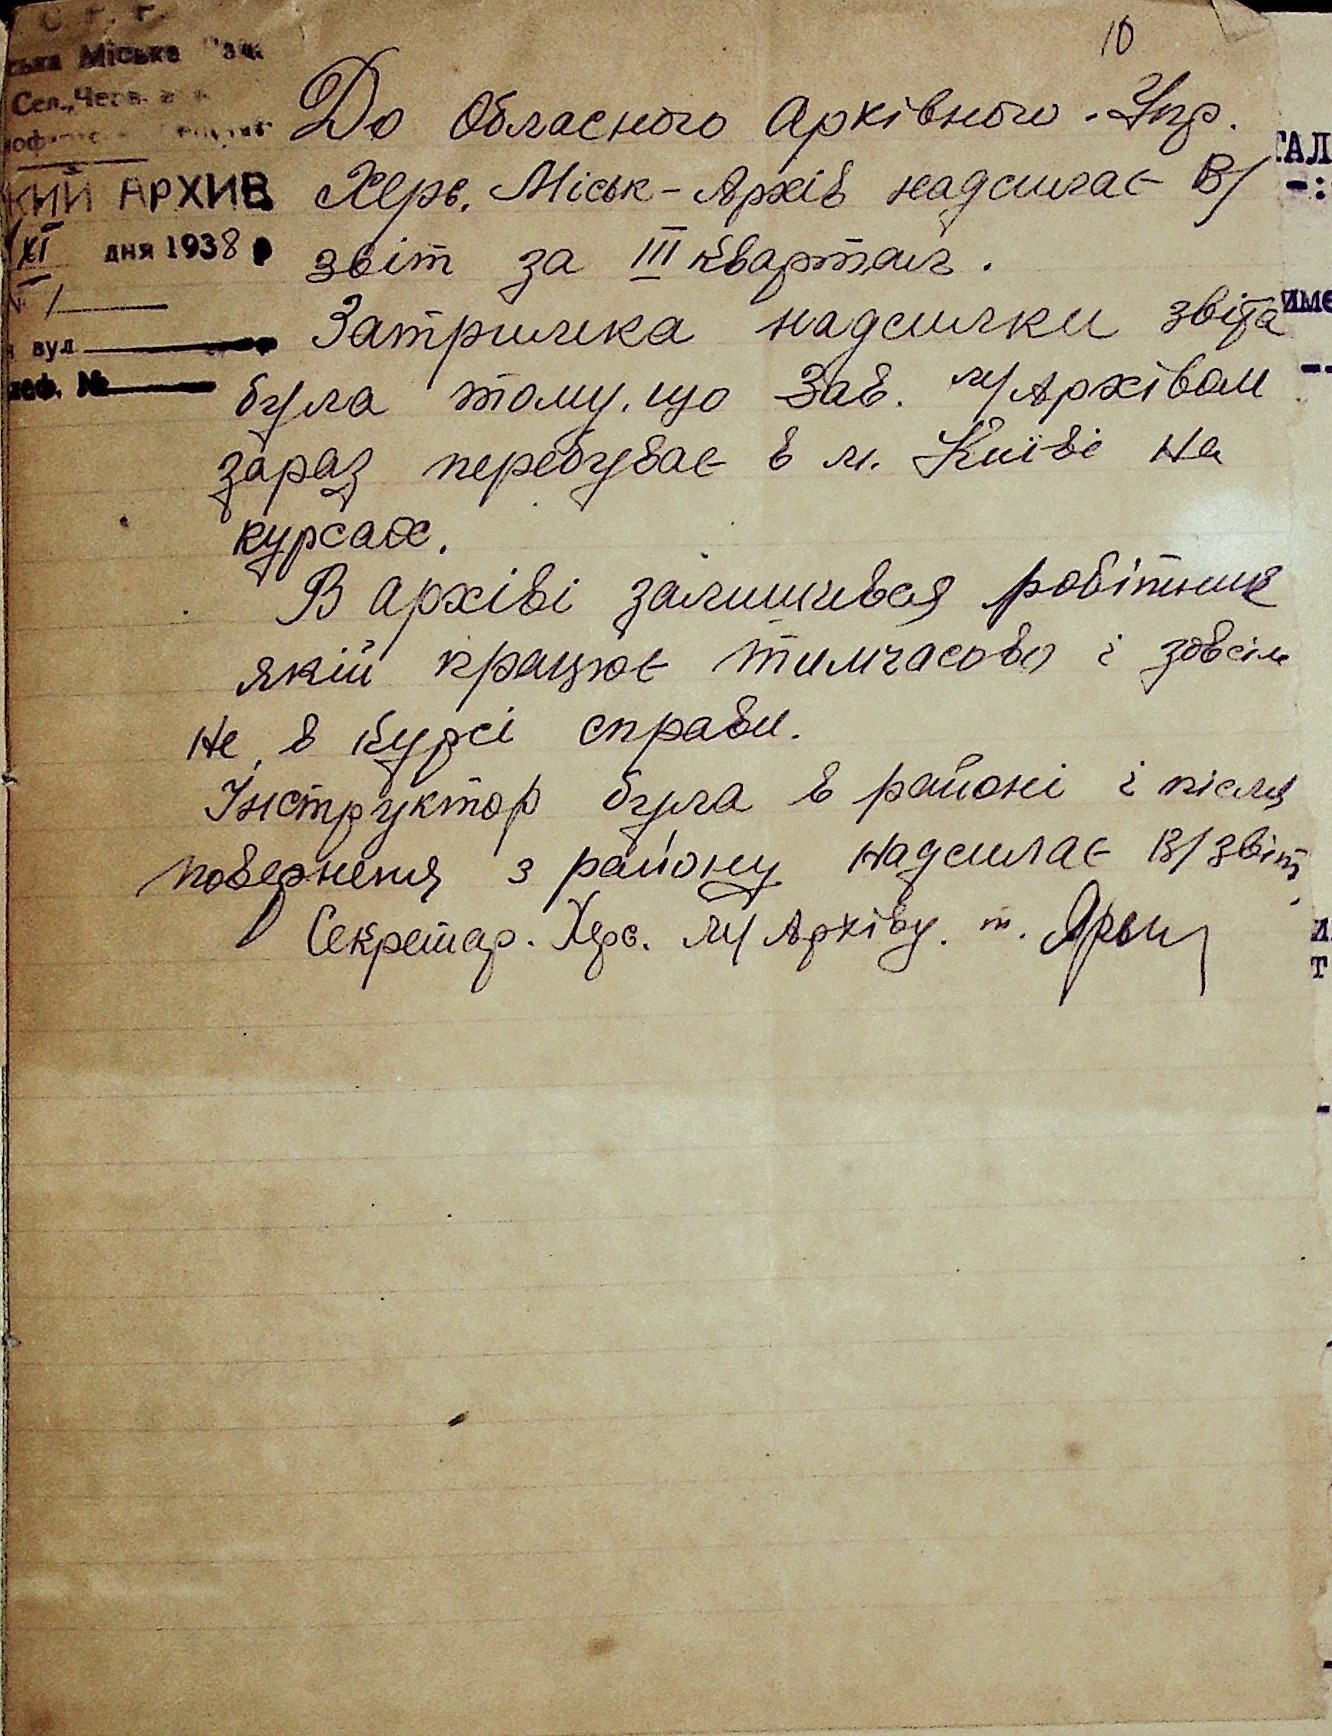 10
У С Р Р
ська Міська Рад
Сел., Черв.
До Обласного Архівного. Упр.
КИЙ АРХИВ
Херс. Міськ-Архів надсилає В/
XI дня 1938 р
звіт за III квартал.
№ 1
Затримка надсилки звіта
вул
була тому, що Зав. м/Архівом
леф. №
зараз перебуває в м. Київі на
курсах.
В архіві залишився робітник
якій працює тимчасово і зовсім
не в курсі справи.
Інструктор була в районі і після
повернення з району надсилає В/звіт
Секретар. Херс. М/Архіву. т.
ТАЛ
-:
име
и
т